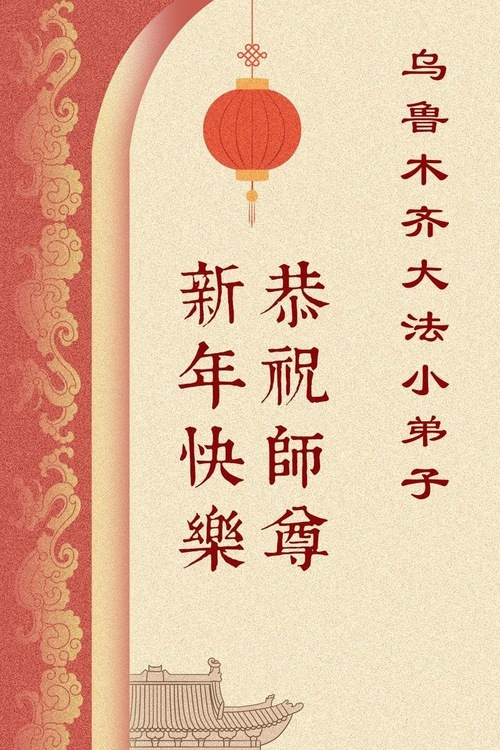 乌鲁木齐大法小弟子
恭祝師尊
新年快樂